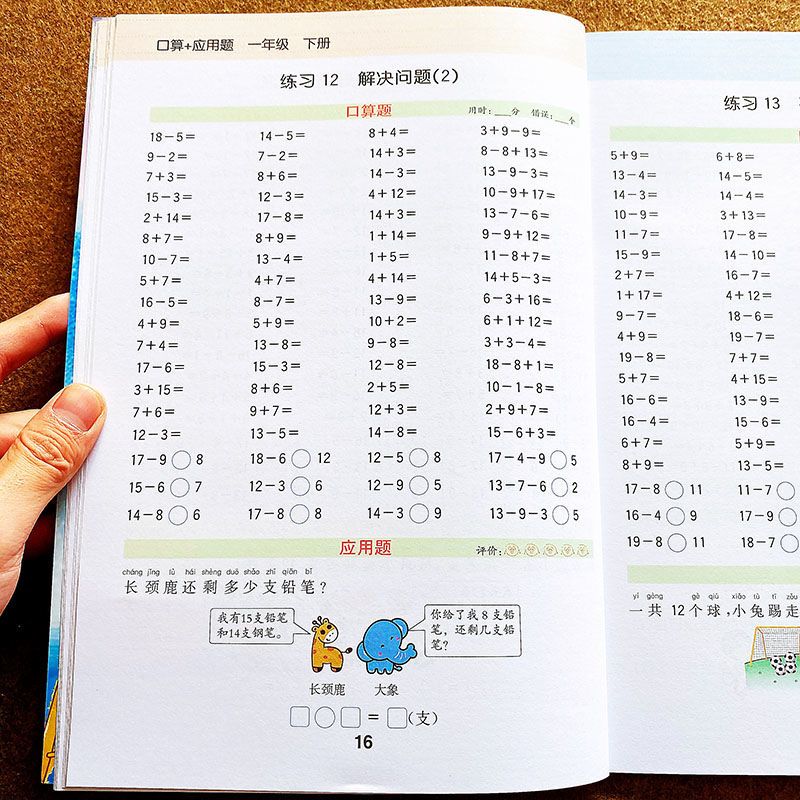 口算+应用题 一年级 下册
练习 12 解决问题(2)
口算题 用时:___分 错误:___个
18-5= 14-5= 8+4= 3+9-9=
9-2= 7-2= 14+3= 8-8+13=
7+3= 8+6= 14-3= 13-9-3=
15-3= 12-3= 4+12= 10-9+17=
2+14= 17-8= 14+3= 13-7-6=
8+7= 8+9= 1+14= 9-9+12=
10-7= 13-4= 1+5= 11-8+7=
5+7= 4+7= 4+14= 14+5-3=
16-5= 8-7= 13-9= 6-3+16=
4+9= 5+9= 10+2= 6+1+12=
7+4= 13-8= 9-8= 3+3-4=
17-6= 15-3= 12-8= 18-8+1=
3+15= 8+6= 2+5= 10-1-8=
7+6= 9+7= 12+3= 2+9+7=
12-3= 13-5= 14-8= 15-6+3=
17-9○8 18-6○12 12-5○8 17-4-9○5
15-6○7 12-3○6 12-9○5 13-7-6○2
14-8○6 17-8○8 14-3○9 13-9-3○5
应用题 评价:
cháng jǐng lù hái shèng duō shǎo zhī qiān bǐ
长颈鹿还剩多少支铅笔?
我有15支铅笔
和14支钢笔。
你给了我 8 支铅
笔，还剩几支铅
笔?
长颈鹿 大象
□○□=□(支)
16
练习 13
5+9= 6+8=
13-4= 14-5=
14-3= 14-4=
10-9= 3+13=
11-7= 17-8=
15-9= 14-10=
2+7= 16-7=
1+17= 4+12=
9-7= 18-6=
4+9= 19-7=
19-8= 7+7=
5+7= 4+15=
16-6= 13-9=
16-4= 15-6=
6+7= 5+9=
8+9= 13-5=
17-8○11 11-7○
16-4○9 17-9○
19-8○11 13-8○
yí gòng gè qiú xiǎo tù tī zǒu
一共 12个球,小兔踢走